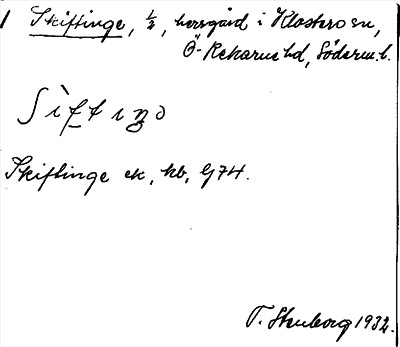 1 Skiftinge, 1/2, herrgård i Klosters sn,
Ö-Rekarne hd, Söderm. l.
Skiftinge ek, hb, G74.
T. Stenborg 1932.